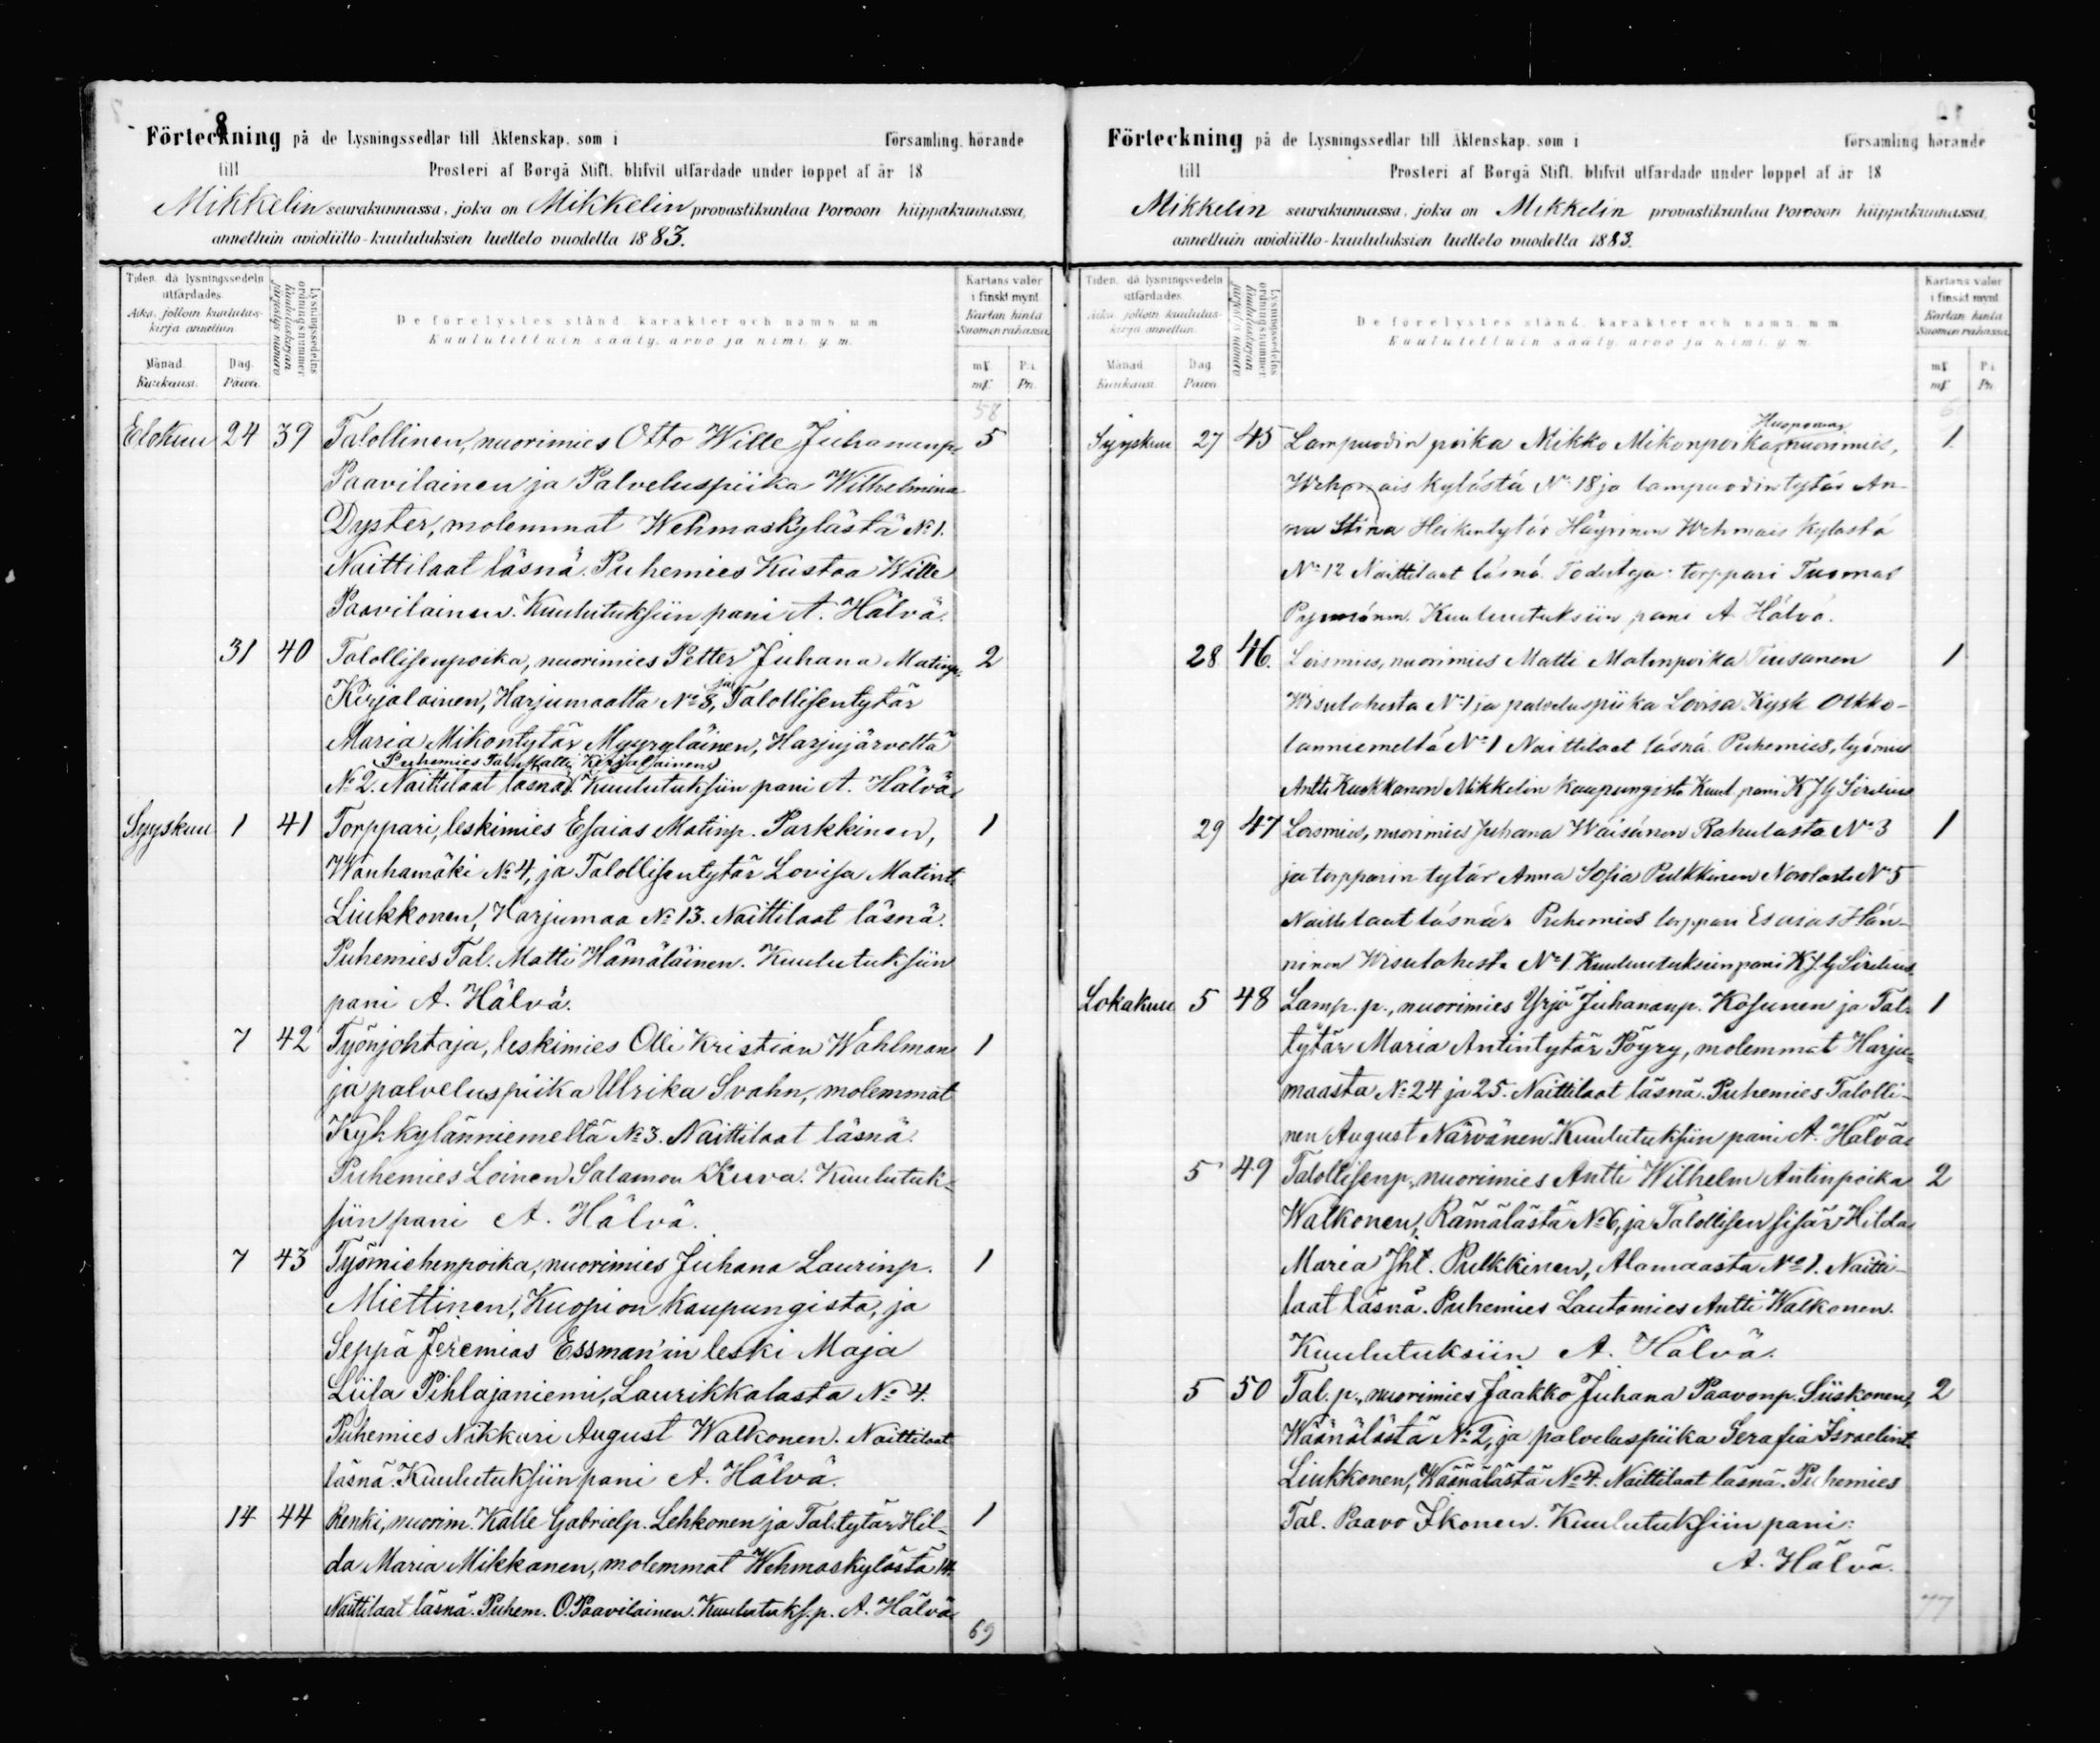 8
Förteckning på de Lysningssedlar till Äktenskap, som i församling, hörande
till Prosteri af Borgå Stift, blifvit utfärdade under loppet af år 18
Mikkelin seurakunnassa, joka on Mikkelin provastikuntaa Porvoon hiippakunnassa,
annettuin avioliitto-kuulutuksien luettelo vuodelta 1883.
Tiden, då lysningssedeln utfärdades.
Aika, jolloin kuulutuskirja annettiin.
Månad. Kuukausi.
Dag. Päivä.
Lysningssedelns ordningsnummer
Kuulutuskirjan järjestys numero
De förelystes stånd, karakter och namn, m m
Kuulutettuin sääty, arvo ja nimi, y. m.
Kartans valör i finskt mynt.
Kartan hinta Suomen rahassa.
mk Pi.
mk. Pn.
58
Elokuu 24 39 Talollinen, nuorimies Otto Wille Juhananp. 5
Paavilainen ja Palveluspiika Wilhelmina
Dyster, molemmat Wehmaskylästä No 1.
Naittilaat läsnä. Puhemies Kustaa Wille
Paavilainen. Kuulutuksiin pani A. Hälvä.
31 40 Talollisenpoika, nuorimies Petter Juhana Matinp. 2
Kirjalainen, Harjumaalta No 8, ja Talollisentytär
Maria Mikontytär Myyryläinen, Harjujärveltä
Puhemies Tal. Matti Kirjalainen
No 2. Naittilaat läsnä. Kuulutuksiin pani A. Hälvä.
Syyskuu 1 41 Torppari, leskimies Esaias Matinp. Parkkinen, 1
Wanhamäki No 4, ja Talollisentytär Lovisa Matint.
Liukkonen, Harjumaa No 13. Naittilaat läsnä.
Puhemies Tal. Matti Hämäläinen. Kuulutuksiin
pani A. Hälvä.
7 42 Työnjohtaja, leskimies Olli Kristian Wahlman 1
ja palveluspiika Ulrika Svahn, molemmat
Kyhkylänniemeltä No 3. Naittilaat läsnä.
Puhemies Loinen Salamon Kuva. Kuulutuk-
siin pani A. Hälvä.
7 43 Työmiehenpoika, nuorimies Juhana Laurinp. 1
Miettinen, Kuopion kaupungista, ja
Seppä Jeremias Essman'in leski Maja
Liisa Pihlajaniemi, Laurikkalasta No 4.
Puhemies Nikkari August Walkonen. Naittilaat
läsnä. Kuulutuksiin pani A. Hälvä.
14 44 Renki, nuorim. Kalle Gabrielp. Lehkonen ja Tal.tytär Hil- 1
da Maria Mikkanen, molemmat Wehmaskylästä 14.
Naittilaat läsnä. Puhem. O. Paavilainen. Kuulutuks. p. A. Hälvä.
69
9
Förteckning på de Lysningssedlar till Äktenskap, som i församling hörande
till Prosteri af Borgå Stift, blifvit utfärdade under loppet af år 18
Mikkelin seurakunnassa, joka on Mikkelin provastikuntaa Porvoon hiippakunnassa,
annettuin avioliitto-kuulutuksien luettelo vuodelta 1883.
Tiden, då lysningssedeln utfärdades.
Aika, jolloin kuulutuskirja annettiin.
Månad. Kuukausi.
Dag. Päivä.
Lysningssedelns ordningsnummer
Kuulutuskirjan järjestys numero
De förelystes stånd, karakter och namn, m m
Kuulutettuin sääty, arvo ja nimi, y. m.
Kartans valör i finskt mynt.
Kartan hinta Suomen rahassa.
mk Pi.
mk. Pn.
Syyskuu 27 45 Lampuodin poika Mikko Mikonpoika nuorimies, 1
Wehmais kylästä No 18 ja lampuodin tytär An-
na Stina Heikintytär Häyrinen Wehmais kylästä
No 12 Naittilaat läsnä. Todistaja: torppari Tuomas
Kuuluutuksiin pani A Hälvä.
28 46. Loismies, nuorimies Matti Matinpoika Tuusanen 1
Wisulahesta No 1 ja palveluspiika Lovisa Kysk Olkko-
lanniemeltä No 1 Naittilaat läsnä. Puhemies, työmies
Antti Kuokkanen Mikkelin kaupungista Kuul. pani K J G Sirelius
29 47 Loismies, nuorimies Juhana Waisänen Rahulasta No 3 1
ja torpparin tytär Anna Sofia Pulkkinen Norolasta No 5
Naittilaat läsnä. Puhemies torppari Esaias Hän-
ninen Wisulahesta No 1. Kuuluutuksiin pani K J G Sirelius.
Lokakuu 5 48 Lamp. p., nuorimies Yrjö Juhananp. Kosunen ja Tal. 1
tytär Maria Antintytär Pöyry, molemmat Harju-
maasta No 24 ja 25. Naittilaat läsnä. Puhemies Talolli-
nen August Närvänen. Kuulutuksiin pani A. Hälvä.
5 49 Talollisenp., nuorimies Antti Wilhelm Antinpoika 2
Walkonen, Rämälästä No 6, ja Talollisen sisär Hilda
Maria Jht. Pulkkinen, Alamaasta No 1. Naitti-
laat läsnä. Puhemies Lautamies Antti Walkonen.
Kuulutuksiin A. Hälvä.
5 50 Tal. p., nuorimies Jaakko Juhana Paavonp. Siiskonen, 2
Wäänälästä No 2, ja palveluspiika Serafia Israelint.
Liukkonen, Wäänälästä No 4. Naittilaat läsnä. Puhemies
Tal. Paavo Ikonen. Kuulutuksiin pani:
A. Hälvä.
77